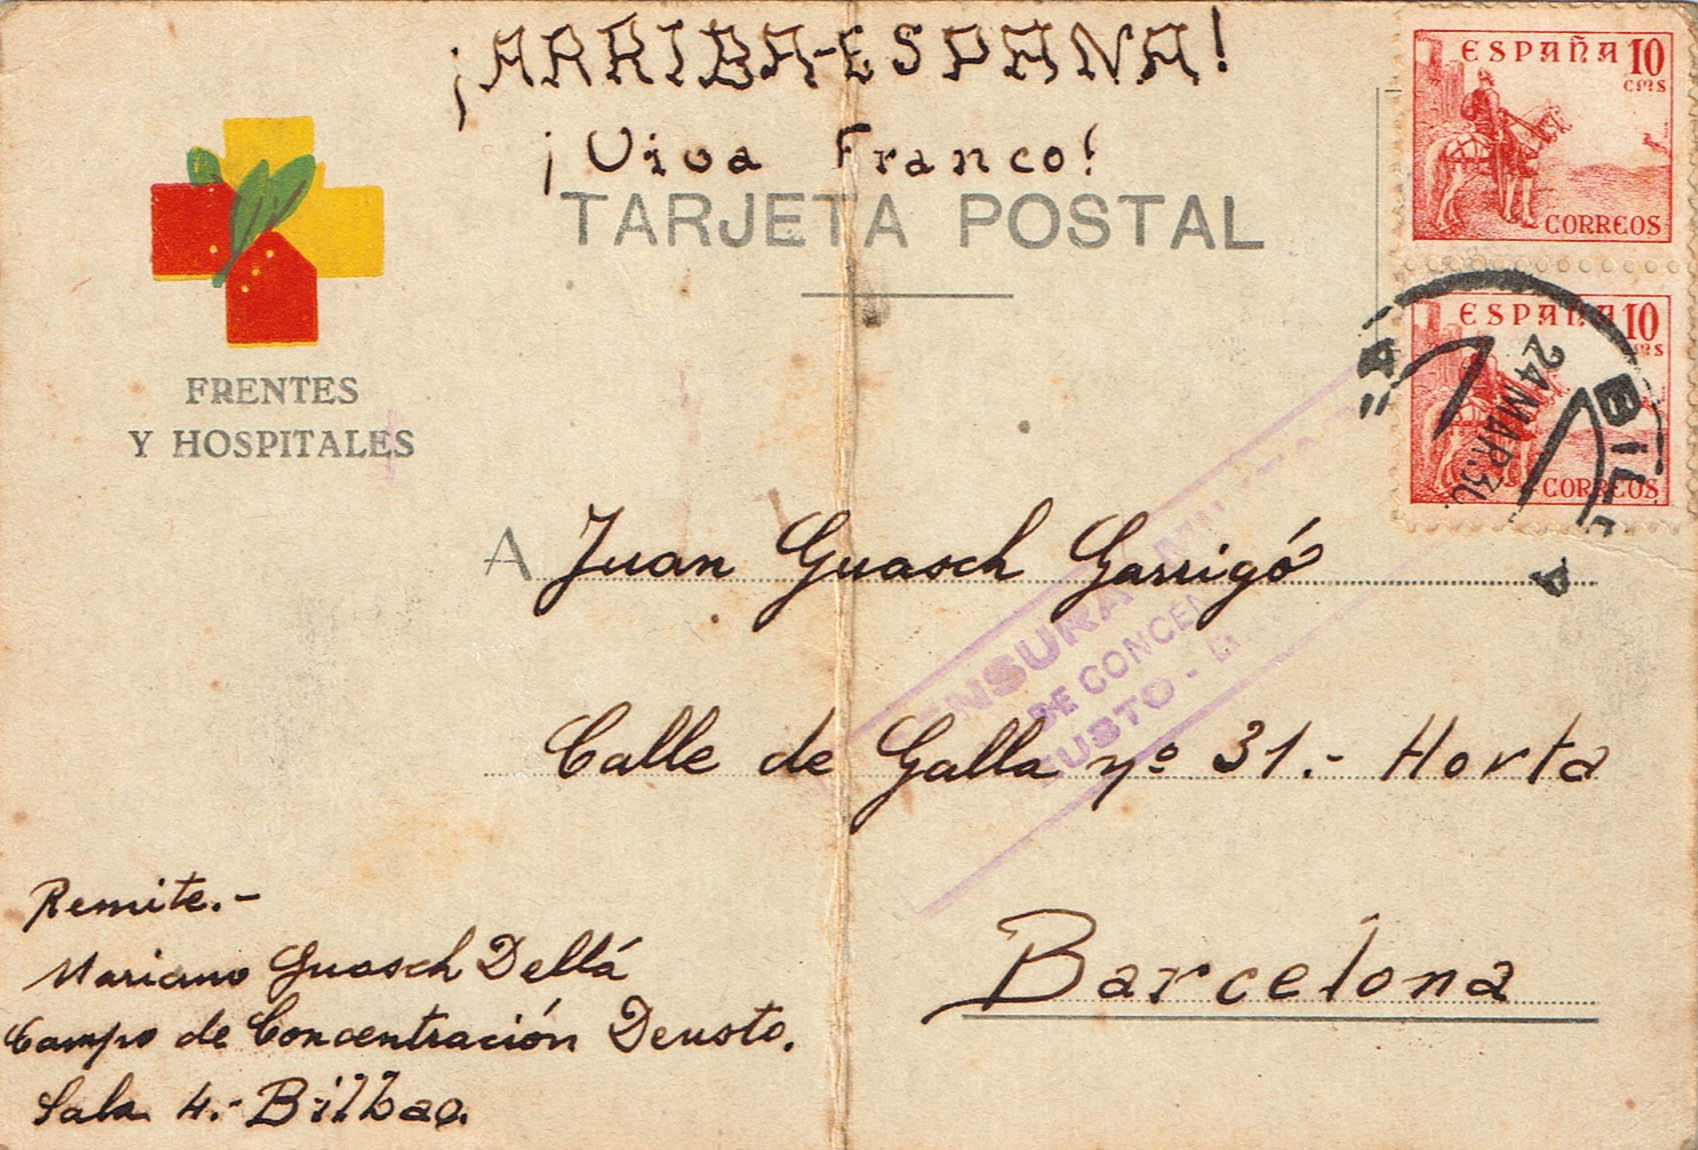 ¡ARRIBA-ESPAÑA!
¡Viva Franco!
TARJETA POSTAL
ESPAÑA 10
CMS
CORREOS
ESPAÑA 10
CMS
CORREOS
24 MAR.
FRENTES
Y HOSPITALES
A Juan Guasch Garrigó
Calle de Galla nº 31.- Horta
Barcelona
Remite.-
Mariano Guasch Dellá
Campo de Concentración Deusto.
Sala 4.- Bilbao.